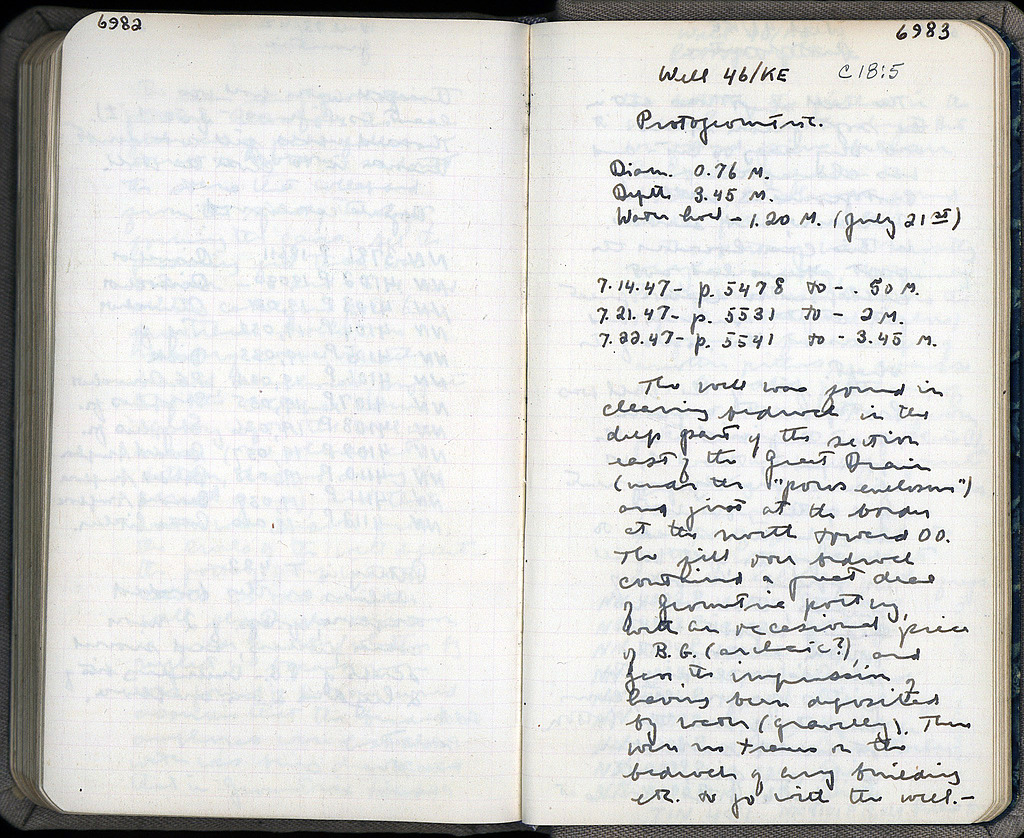 6982
6983
Well 46/KE C 18:5
Protogeometric.
Diam. 0.76 M.
Depth 3.45 M.
Water level - 1.20 M. (July 21st)
7.14.47 - p. 5478 to - .50 M.
7.21.47 - p. 5531 to - 2 M.
7.22.47 - p. 5541 to - 3.45 M.
The well was found in
clearing bedrock in the
deep part of the section
east of the Great Drain
(under the "poros enclosure")
and just at the border
at the north toward OO.
The fill over bedrock
contained a great deal
of Geometric pottery,
with an occasional piece
of B.G. (archaic?), and
gave the impression of
having been deposited
by water (gravelly). There
were no traces on the
bedrock of any building
etc. to go with the well.-